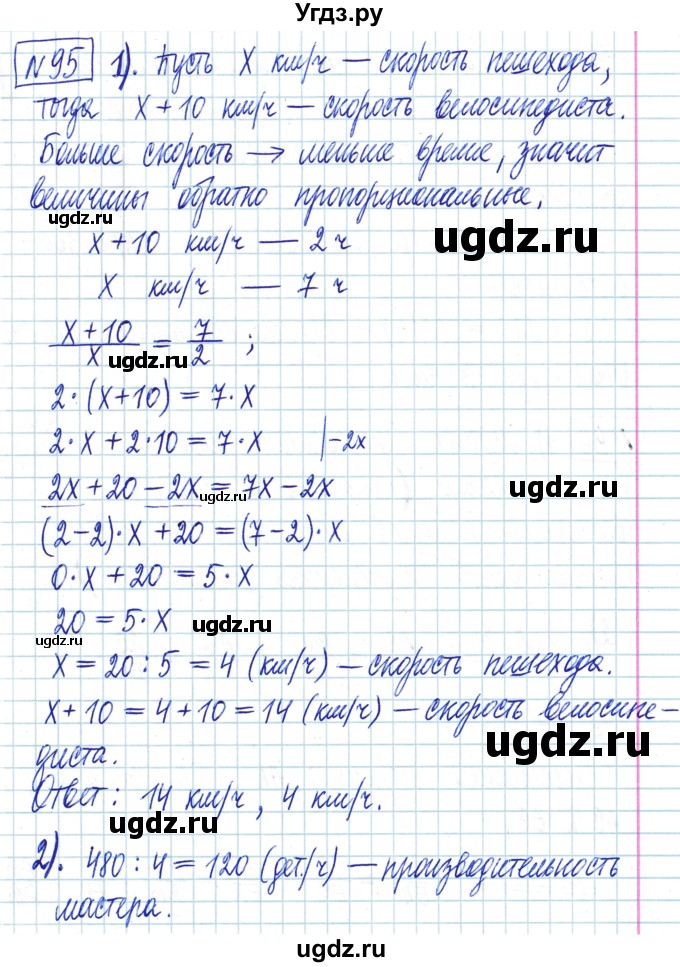 Угдз.ру
№95 1). Пусть х км/ч — скорость пешехода,
тогда х+10 км/ч — скорость велосипедиста.
Больше скорость → меньше время, значит
величины обратно пропорциональные.
ugdz.ru
х+10 км/ч — 2 ч
ugdz.ru
х км/ч — 7 ч
(х+10)/х = 7/2 ;
ugdz.ru
2·(х+10) = 7·х
2·х + 2·10 = 7·х |-2х
ugdz.ru
2х + 20 - 2х = 7х - 2х
ugdz.ru
ugdz.ru
(2-2)·х + 20 = (7-2)·х
0·х + 20 = 5·х
20 = 5·х
ugdz.ru
ugdz.ru
х = 20 : 5 = 4 (км/ч) — скорость пешехода.
х + 10 = 4 + 10 = 14 (км/ч) — скорость велосипе-
диста.
ugdz.ru
Ответ: 14 км/ч, 4 км/ч.
ugdz.ru
2). 480 : 4 = 120 (дет/ч) — производительность
мастера.
ugdz.ru